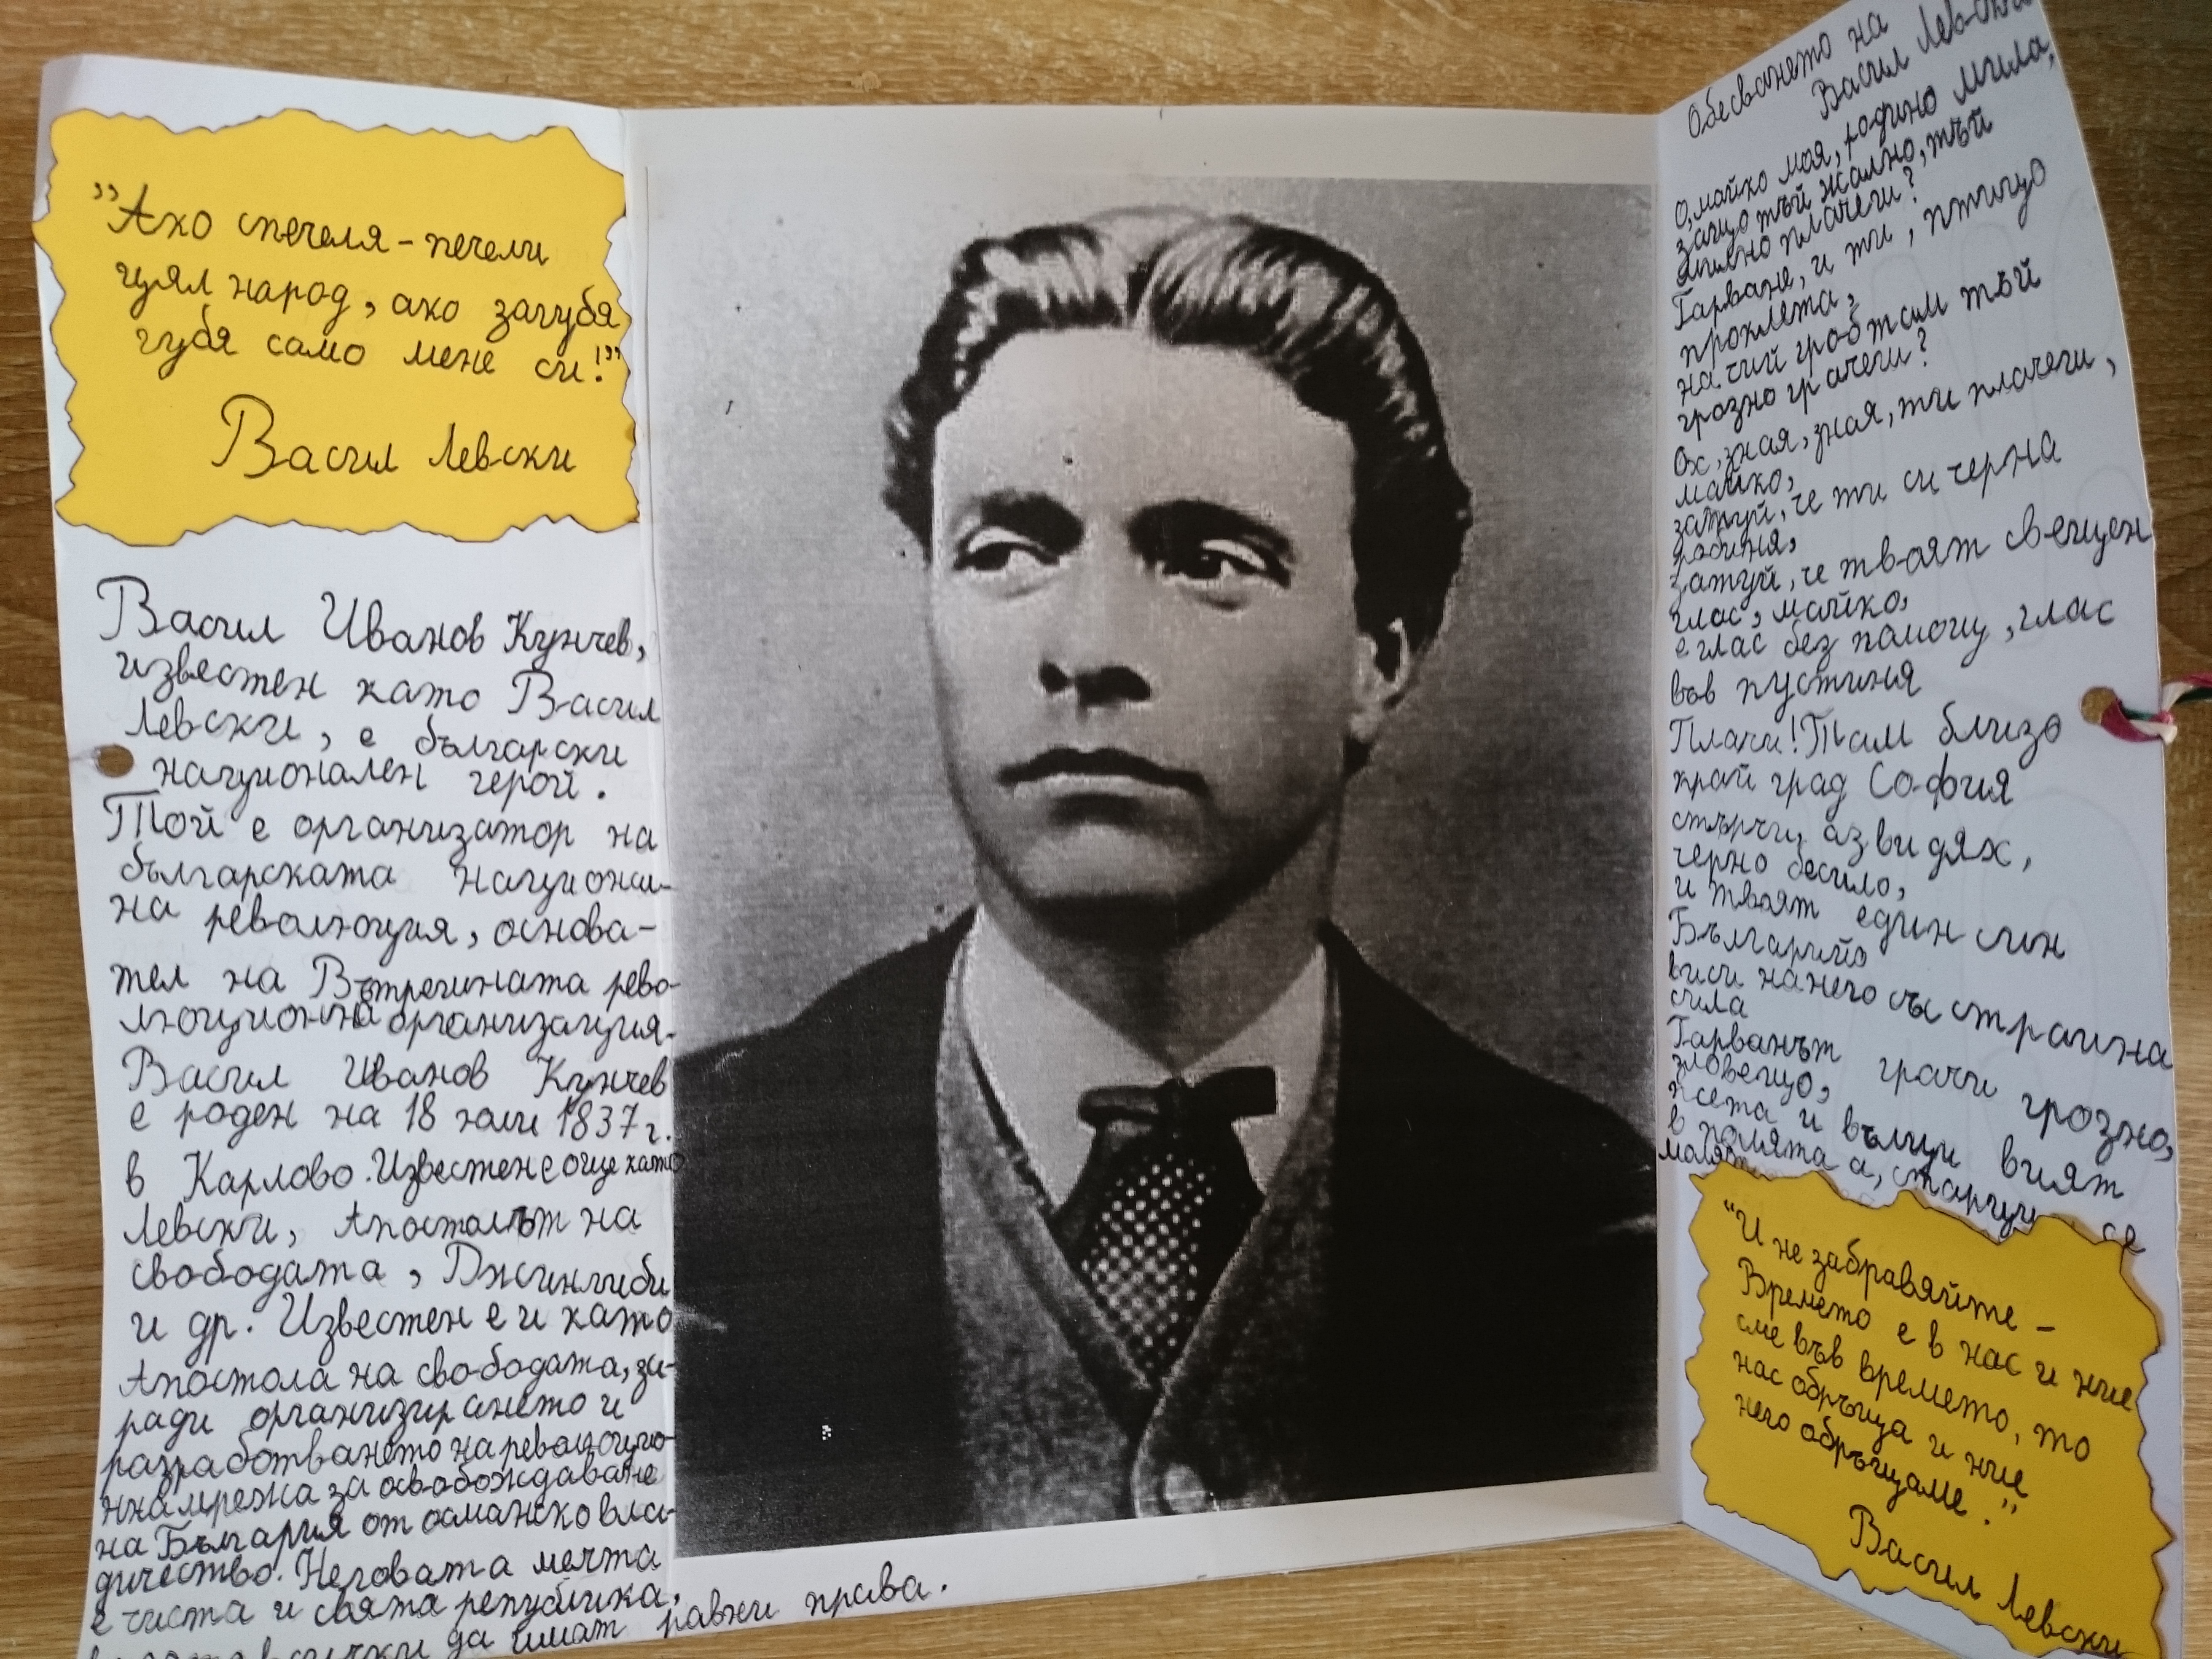 "Ако спечеля - печели
цял народ, ако загубя
губя само мене си!"
Васил Левски
Васил Иванов Кунчев,
известен като Васил
Левски, е български
национален герой.
Той е организатор на
българската национал-
на революция, основа-
тел на Вътрешната рево-
люционна организация.
Васил Иванов Кунчев
е роден на 18 юли 1837г.
в Карлово. Известен е още като
Левски, Апостолът на
свободата, Джингиби
и др. Известен е и като
Апостола на свободата, за-
ради организирането и
разработването на революцио-
нна мрежа за освобождаване
на България от османско вла-
дичество. Неговата мечта
е чиста и свята република,
всички да имат равни права.
Обесването на
Васил Левски
О, майко моя, родино мила,
защо тъй жално, тъй
милно плачеш?
Гарване, и ти, птицо
проклета,
на чий гроб там тъй
грозно грачеш?
Ох, зная, зная, ти плачеш,
майко,
затуй, че ти си черна
робиня,
затуй, че твоят свещен
глас, майко,
е глас без помощ, глас
във пустиня
Плачи! Там близо
край град София
стърчи, аз видях,
черно бесило,
и твоят един син
Българийо
виси на него със страшна
сила
Гарванът грачи грозно,
зловещо,
псета и вълци вият
в полята а, старци се
молят
"И не забравяйте -
Времето е в нас и ние
сме във времето, то
нас обръща и ние
него обръщаме."
Васил Левски